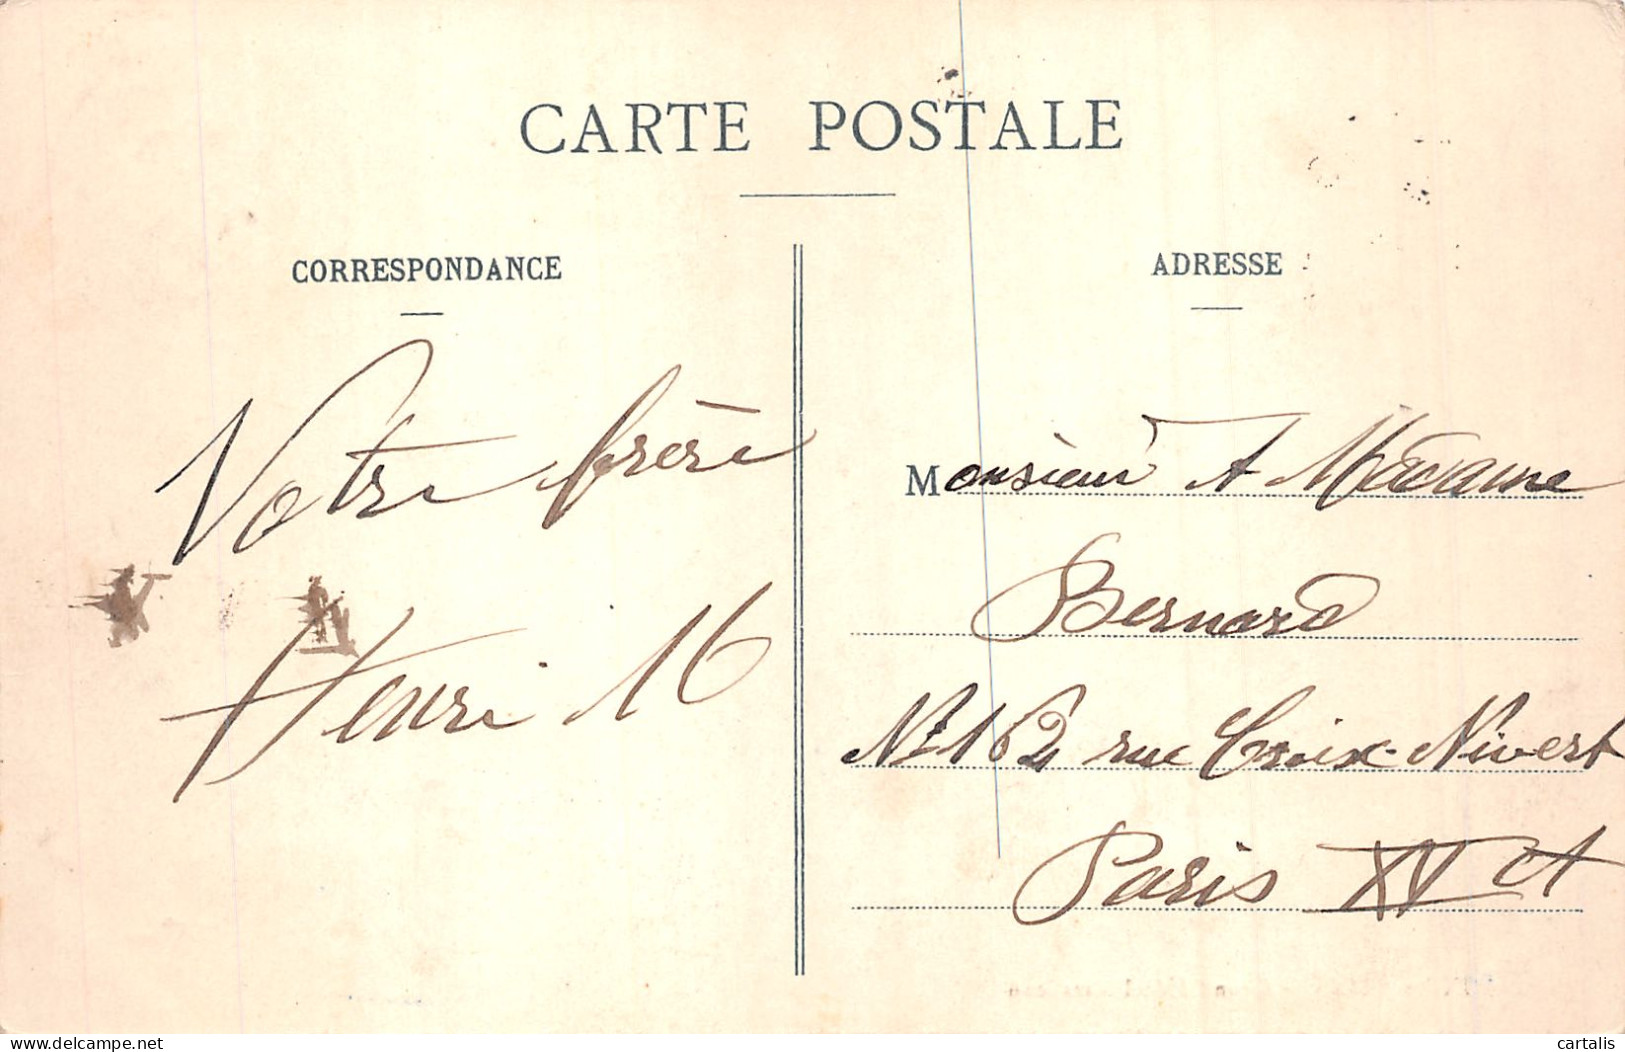 CARTE POSTALE
CORRESPONDANCE
Votre frère
Henri 16
ADRESSE
Monsieur et Madame
Bernard
N° 162 rue Croix-Nivert
Paris XV et
www.delcampe.net
cartalis